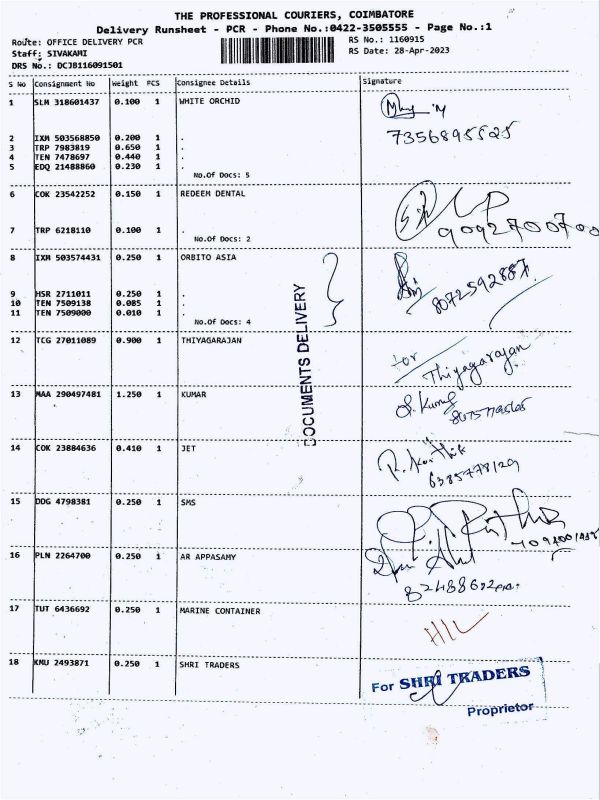 THE PROFESSIONAL COURIERS, COIMBATORE
Delivery Runsheet - PCR - Phone No.:0422-3505555 - Page No.:1
Route: OFFICE DELIVERY PCR
RS No.: 1160915
Staff: SIVAKAMI
RS Date: 28-Apr-2023
DRS No.: DCJB116091501
S No Consignment No Weight PCS Consignee Details Signature
1 SLM 318601437 0.100 1 WHITE ORCHID
7356895525
2 IXM 503568850 0.200 1 .
3 TRP 7983819 0.650 1 .
4 TEN 7478697 0.440 1 .
5 EDQ 21488860 0.230 1 .
No.Of Docs: 5
6 COK 23542252 0.150 1 REDEEM DENTAL
9092700700
7 TRP 6218110 0.100 1 .
No.Of Docs: 2
8 IXM 503574431 0.250 1 ORBITO ASIA
8072592887
9 HSR 2711011 0.250 1 .
10 TEN 7509138 0.085 1 .
11 TEN 7509000 0.010 1 .
No.Of Docs: 4
DOCUMENTS DELIVERY
12 TCG 27011089 0.900 1 THIYAGARAJAN
for Thiyagarajan
13 MAA 290497481 1.250 1 KUMAR
S. Kumar
14 COK 23884636 0.410 1 JET
R. Karthik
6385778129
15 DDG 4798381 0.250 1 SMS
16 PLN 2264700 0.250 1 AR APPASAMY
17 TUT 6436692 0.250 1 MARINE CONTAINER
18 KMU 2493871 0.250 1 SHRI TRADERS
For SHRI TRADERS
Proprietor